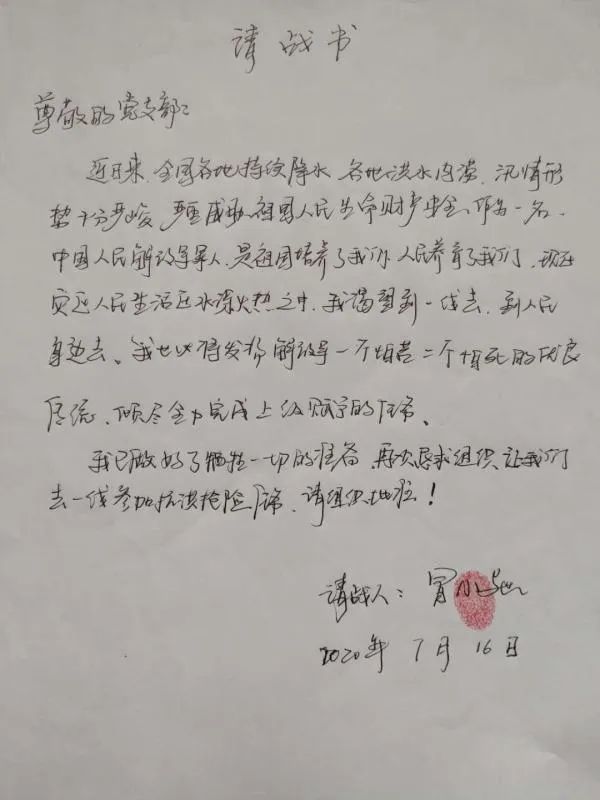 请战书
尊敬的党支部：
近日来，全国各地持续降水，各地洪水内涝，汛情形
势十分严峻，严重威胁祖国人民生命财产安全，作为一名，
中国人民解放军军人，是祖国培养了我们，人民养育了我们，现在
灾区人民生活在水深火热之中，我渴望到一线去，到人民
身边去、我也必将发扬解放军一不怕苦二不怕死的优良
传统、倾尽全力完成上级赋予的任务、
我已做好了牺牲一切的准备，再次恳求组织让我们
去一线参加抗洪抢险任务，请组织批准！
请战人：
2020年 7月 16日